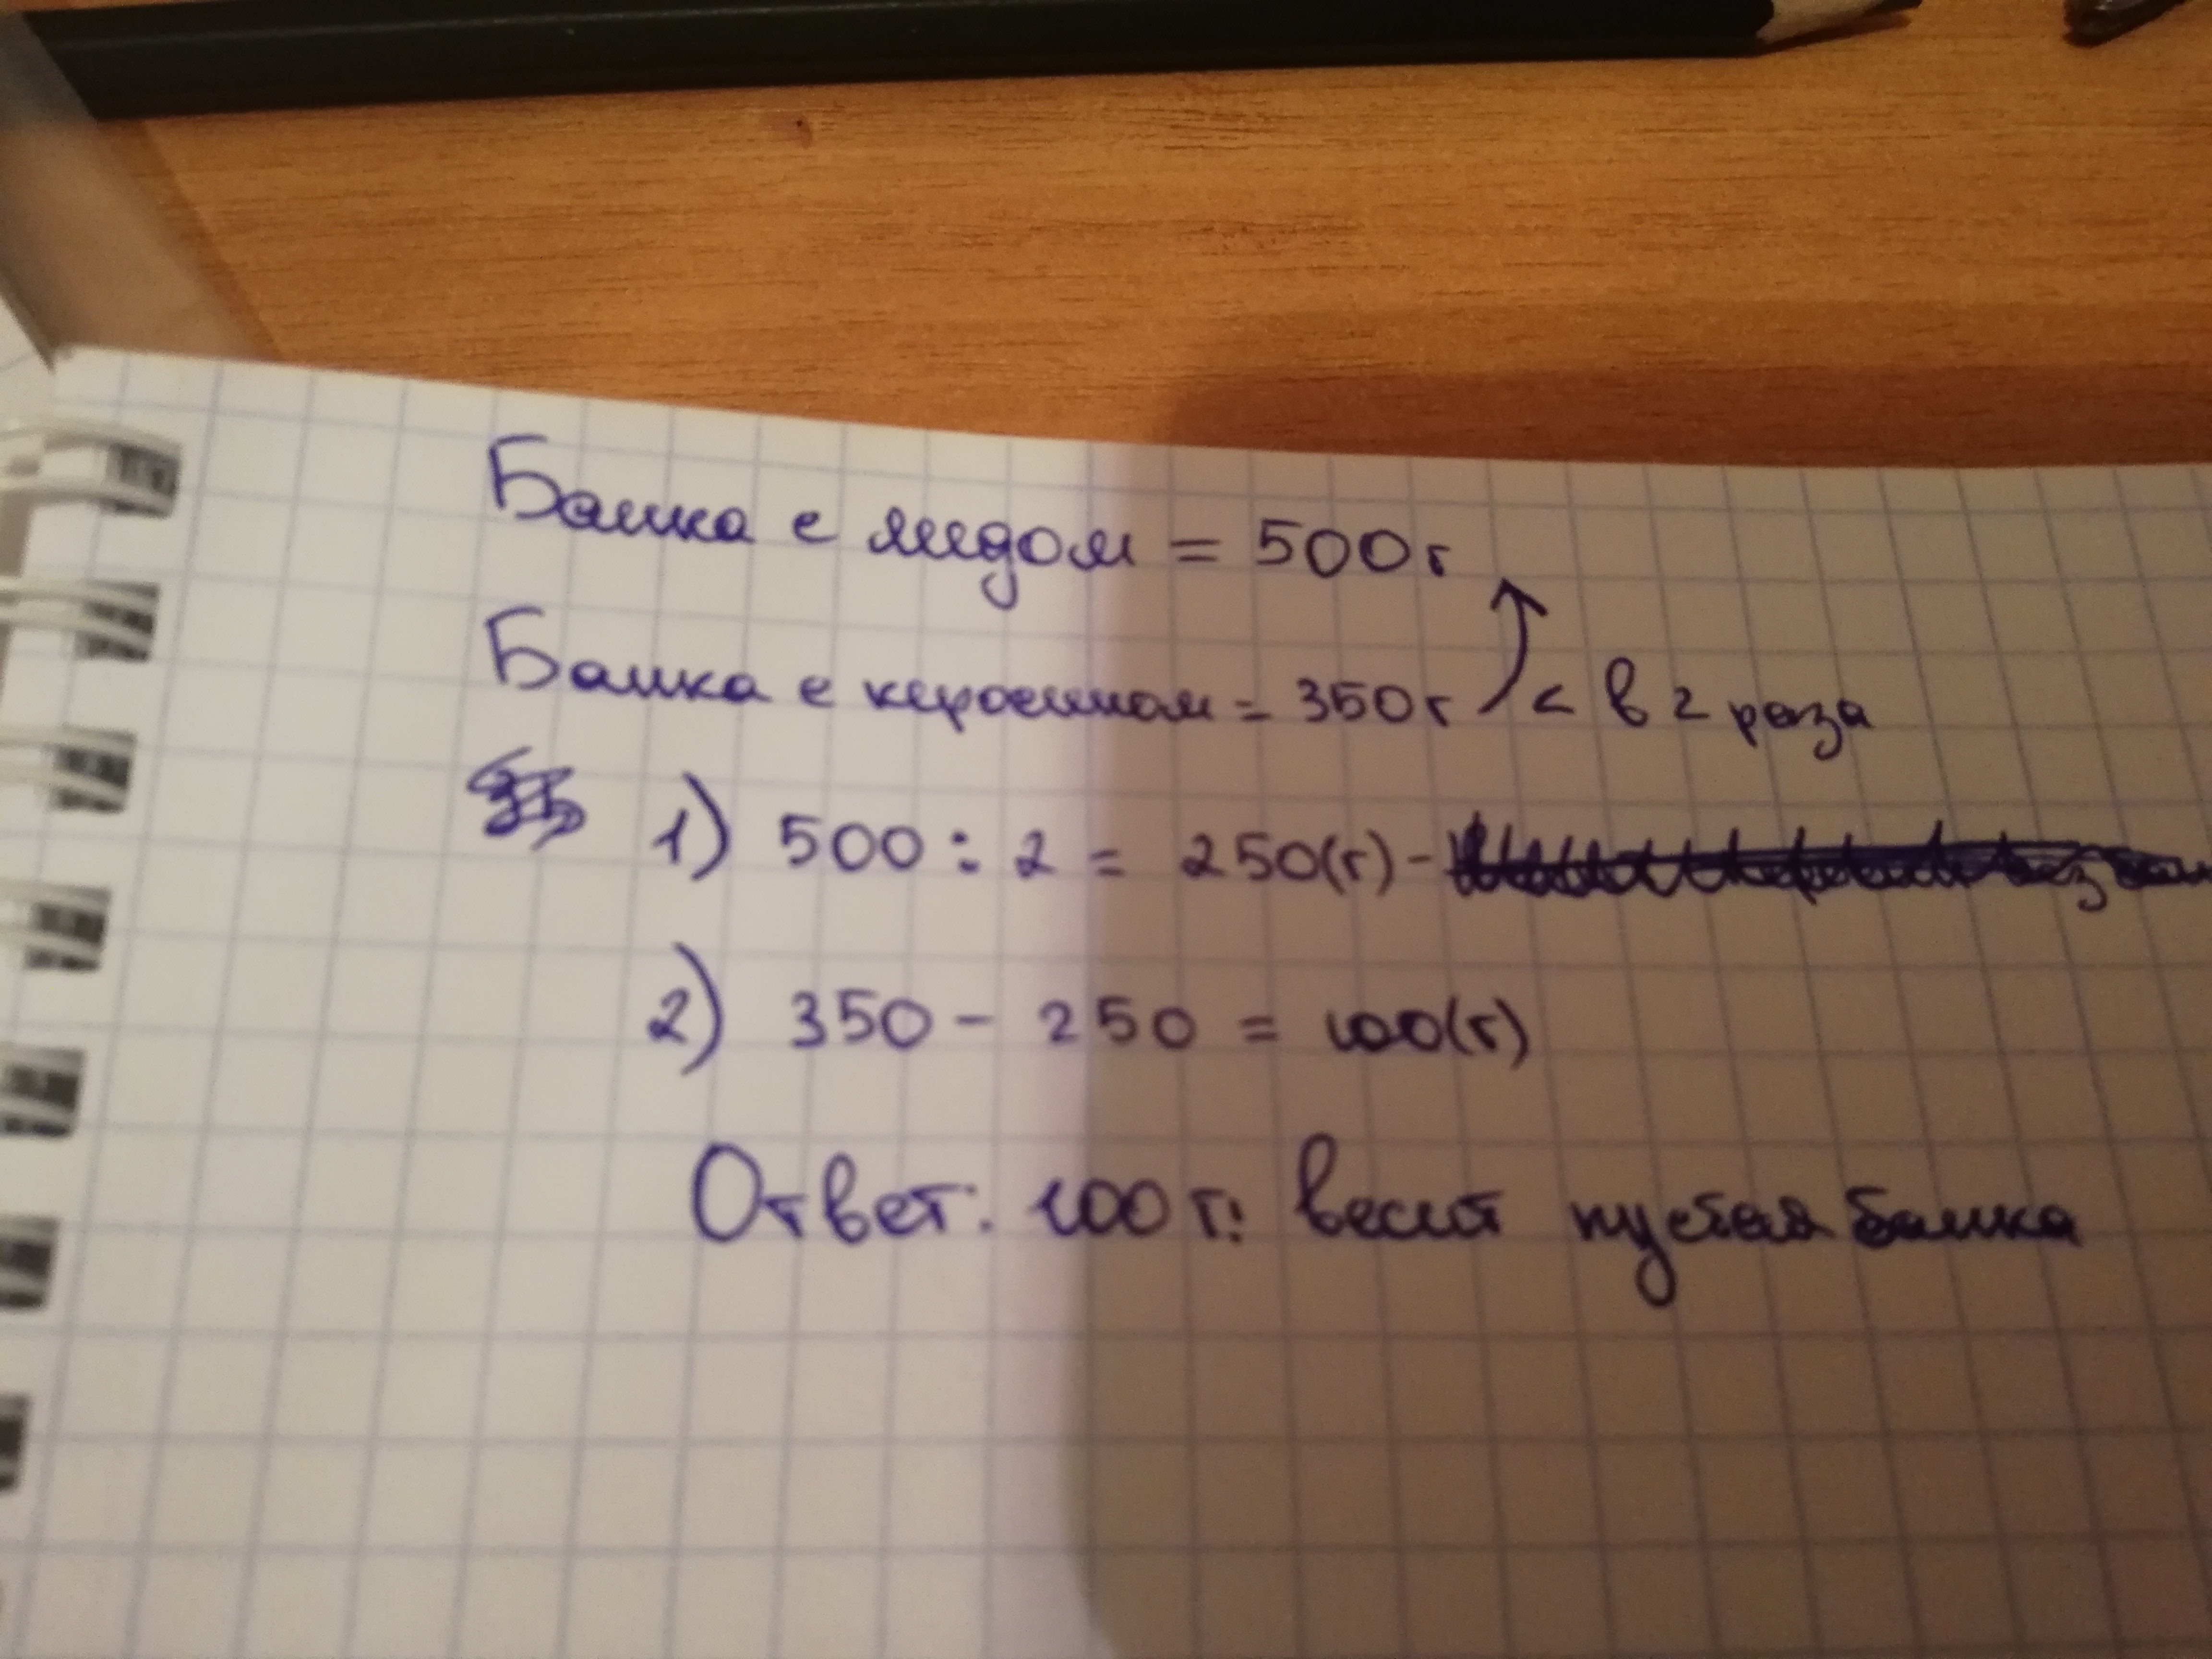 Банка с мёдом = 500г
Банка с керосином = 350г < в 2 раза
1) 500 : 2 = 250(г) -
2) 350 - 250 = 100(г)
Ответ: 100 г. весит пустая банка